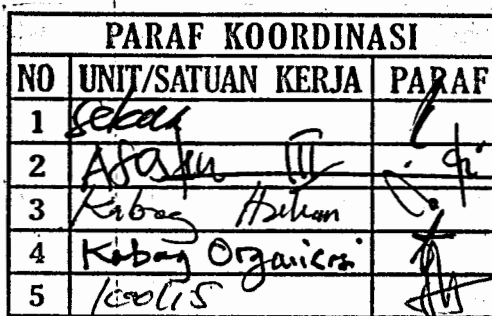 PARAF KOORDINASI
NO UNIT/SATUAN KERJA PARAF
1 Sekda
2 Asisten III
3 Kabag Hukum
4 Kabag Organisasi
5